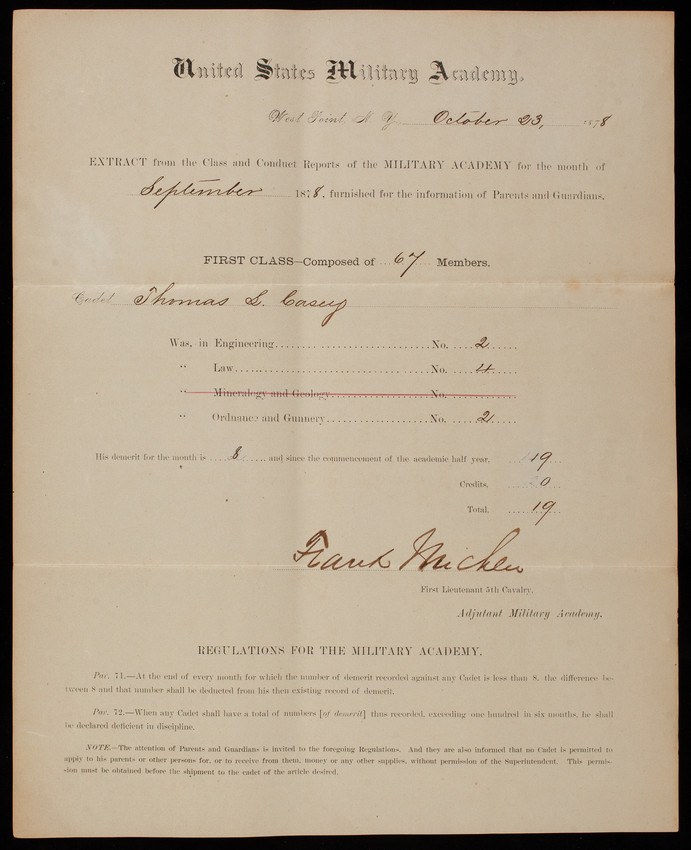 United States Military Academy.
West Point, N. Y. October 23, 1878
EXTRACT from the Class and Conduct Reports of the MILITARY ACADEMY for the month of
September 1878, furnished for the information of Parents and Guardians.
FIRST CLASS—Composed of 67 Members.
Cadet Thomas L. Casey
Was, in Engineering........................No. ....2.....
" Law........................No. ....4.....
" Mineralogy and Geology........................No. ..............
" Ordnance and Gunnery........................No. ....2.....
His demerit for the month is ....8...., and since the commencement of the academic half year, ....19...
Credits, ....0...
Total, ....19...
Frank Michler
First Lieutenant 5th Cavalry,
Adjutant Military Academy.
REGULATIONS FOR THE MILITARY ACADEMY.
Par. 71.—At the end of every month for which the number of demerit recorded against any Cadet is less than 8, the difference be-
tween 8 and that number shall be deducted from his then existing record of demerit.
Par. 72.—When any Cadet shall have a total of numbers [of demerit] thus recorded, exceeding one hundred in six months, he shall
be declared deficient in discipline.
NOTE.—The attention of Parents and Guardians is invited to the foregoing Regulations. And they are also informed that no Cadet is permitted to
apply to his parents or other persons for, or to receive from them, money or any other supplies, without permission of the Superintendent. This permis-
sion must be obtained before the shipment to the cadet of the article desired.